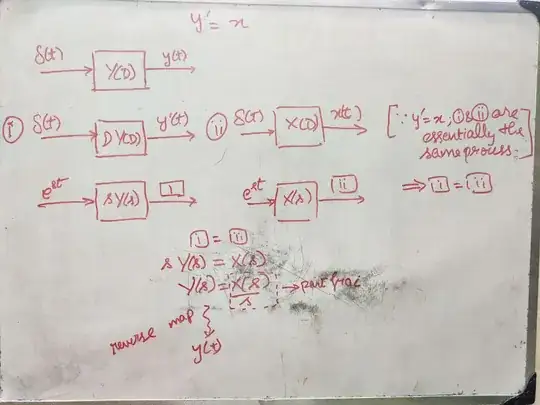 y' = x
δ(t) Y(D) y(t)
i δ(t) D Y(D) y'(t) ii δ(t) X(D) x(t) [∵ y'=x, i & ii are
essentially the
same process.]
e^st s Y(s) i e^st X(s) ii ⇒ i = ii
i = ii
s Y(s) = X(s)
Y(s) = X(s)/s → part frac
reverse map
y(t)